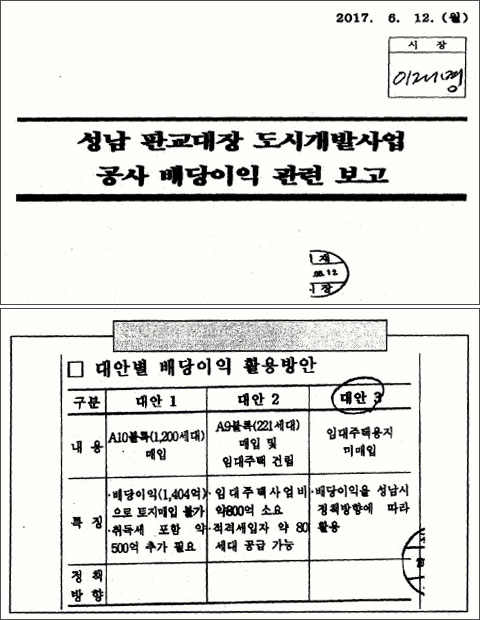 2017. 6. 12.(월)
시 장
이재명
성남 판교대장 도시개발사업
공사 배당이익 관련 보고
재
.06.12
시장
□ 대안별 배당이익 활용방안
구분 대안 1 대안 2 대안 3
내 용
A10블록(1,200세대)
매입
A9블록(221세대)
매입 및
임대주택 건립
임대주택용지
미매입
특 징
·배당이익(1,404억)
으로 토지매입 불가
·취득세 포함 약
500억 추가 필요
·임대주택사업비
약800억 소요
·적격세입자 약 80
세대 공급 가능
·배당이익을 성남시
정책방향에 따라
활용
정 책
방 향